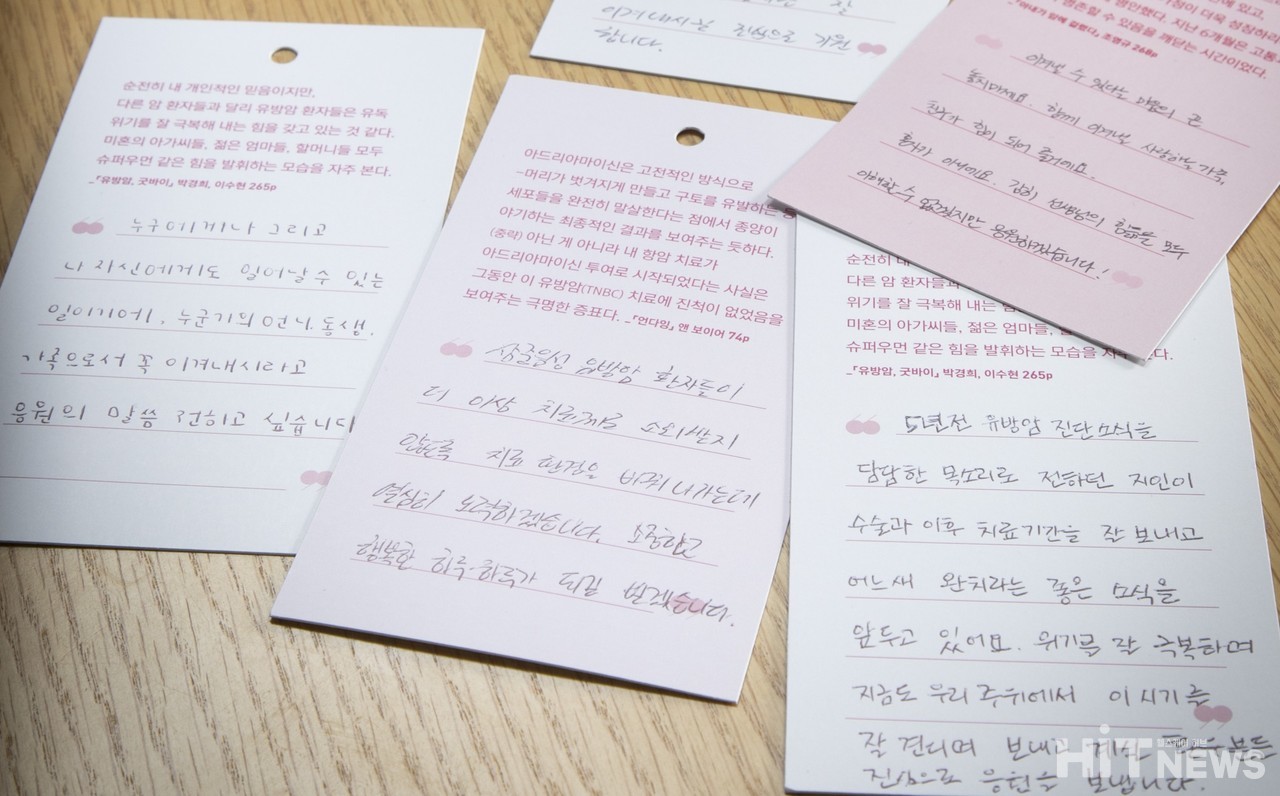 순전히 내 개인적인 믿음이지만,
다른 암 환자들과 달리 유방암 환자들은 유독
위기를 잘 극복해 내는 힘을 갖고 있는 것 같다.
미혼의 아가씨들, 젊은 엄마들, 할머니들 모두
슈퍼우먼 같은 힘을 발휘하는 모습을 자주 본다.
_『유방암, 굿바이』 박경희, 이수현 265p
누구에게나 그리고
나 자신에게도 일어날 수 있는
일이기에, 누군가의 언니. 동생.
가족으로서 꼭 이겨내시라고
응원의 말씀 전하고 싶습니다
아드리아마이신은 고전적인 방식으로
–머리가 벗겨지게 만들고 구토를 유발하는 등
세포들을 완전히 말살한다는 점에서 종양이
야기하는 최종적인 결과를 보여주는 듯하다.
(중략) 아닌 게 아니라 내 항암 치료가
아드리아마이신 투여로 시작되었다는 사실은
그동안 이 유방암(TNBC) 치료에 진척이 없었음을
보여주는 극명한 증표다. _『언다잉』 앤 보이어 74p
삼중음성 유방암 환자들이
더 이상 치료제로 소외받지
않도록 치료 환경을 바꿔나가는데
열심히 노력하겠습니다. 소중하고
행복한 하루·하루가 되길 빌겠습니다.
이겨내시길 진심으로 기원
합니다.
있고,
더욱 성장하리
생존할 수 있음을 깨닫는 시간이었다.
방안했다. 지난 6개월은 고통
_『아내가 암에 걸렸다』 조명규 268p
이겨낼 수 있다는 마음의 끈
놓지마세요. 함께 이겨낼 사랑하는 가족,
친구가 힘이 되어 줄거예요.
혼자가 아니예요. 감히 선생님의 힘듦을 모두
이해할 수 없겠지만 응원하겠습니다.!
순전히 내
다른 암 환자들과
위기를 잘 극복해 내는
미혼의 아가씨들, 젊은 엄마들,
슈퍼우먼 같은 힘을 발휘하는 모습을 자주 본다.
_『유방암, 굿바이』 박경희, 이수현 265p
5년전 유방암 진단 소식을
담담한 목소리로 전하던 지인이
수술과 이후 치료기간을 잘 보내고
어느새 완치라는 좋은 소식을
앞두고 있어요. 위기를 잘 극복하며
지금도 우리 주위에서 이 시기를
잘 견디며 보내고 계신
진심으로 응원을 보냅니다.
HiT NEWS